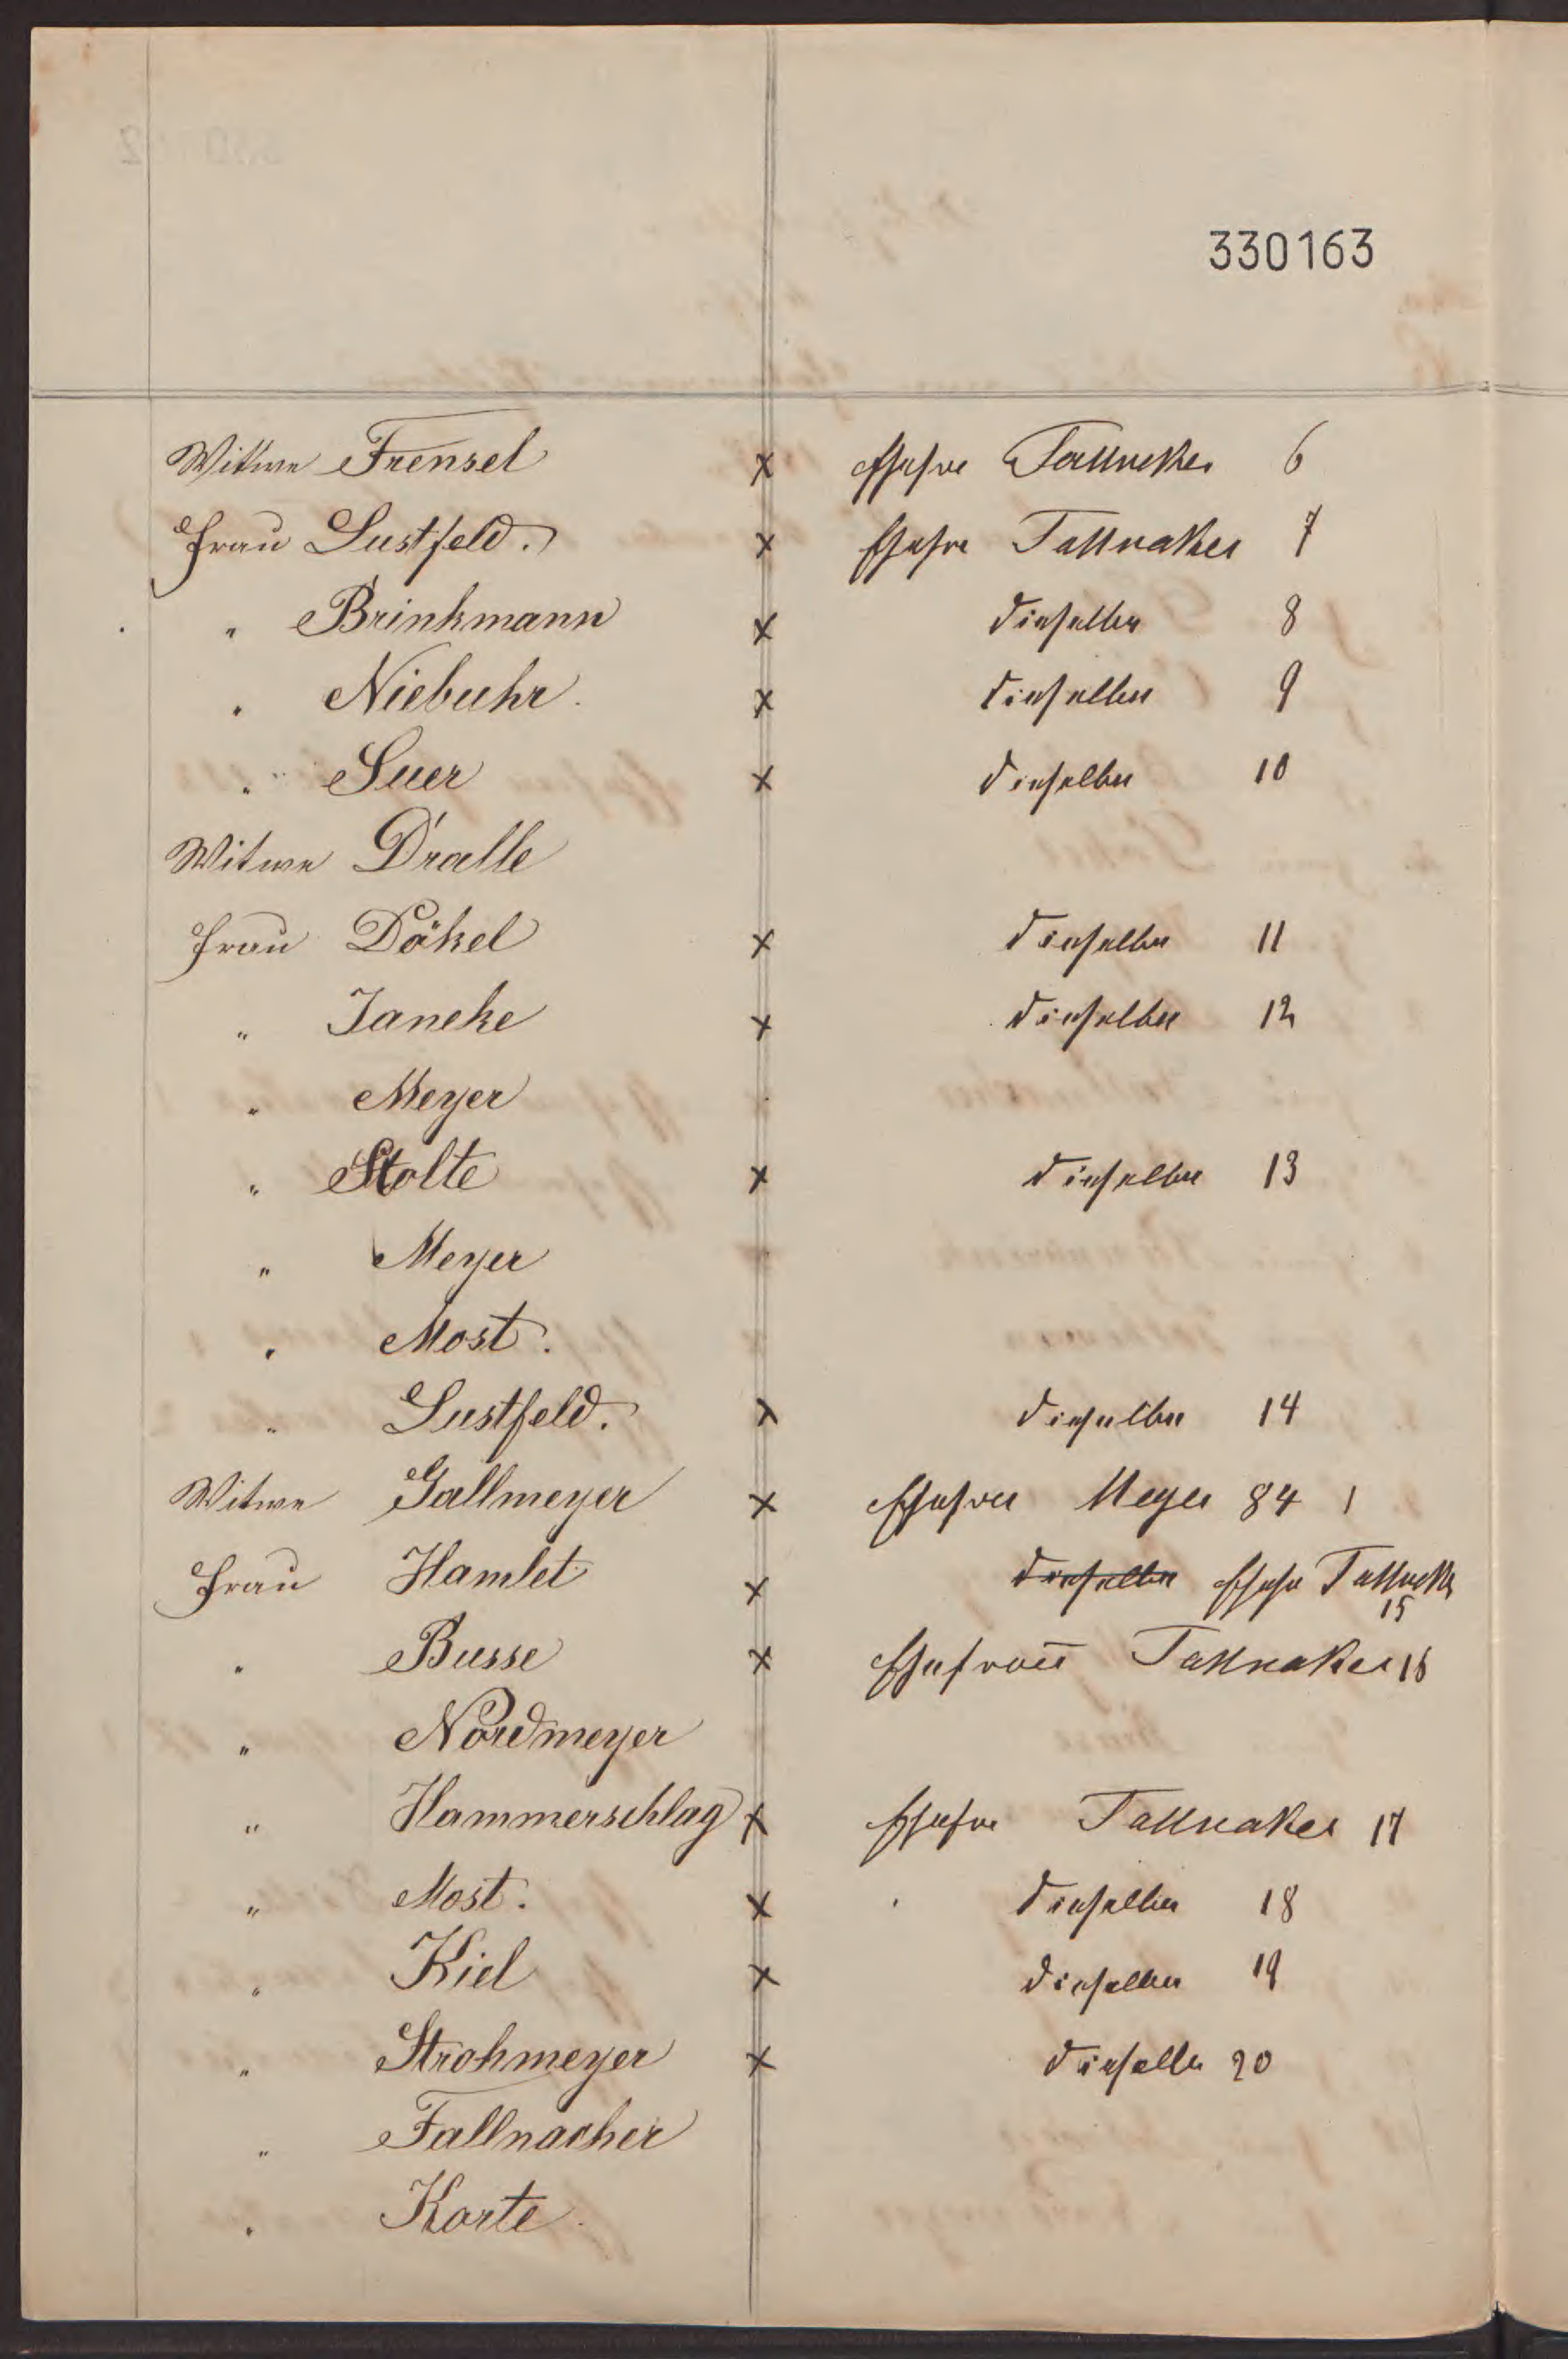 330163
Wittwe Frensel x Ehefre Fallneker 6
Frau Lustfeld. x Ehefre Fallnaker 7
" Brinkmann x dieselbe 8
" Niebuhr. x dieselbe 9
" Suer x dieselbe 10
Witwe Dralle
Frau Däkel x dieselbe 11
" Janeke x dieselbe 12
" Meyer
" Stolte x dieselbe 13
" Meyer
" Most.
" Lustfeld. x dieselbe 14
Witwe Gallmeyer x Ehefrau Meyer 84 1
Frau Hamlet x dieselbe Ehefr Fallnaker 15
" Busse x Ehefrau Fallnaker 16
" Nordmeyer
" Hammerschlag x Ehefre Fallnaker 17
" Most. x dieselbe 18
" Kiel x dieselbe 19
" Strohmeyer x dieselbe 20
" Fallnacher
" Korte.